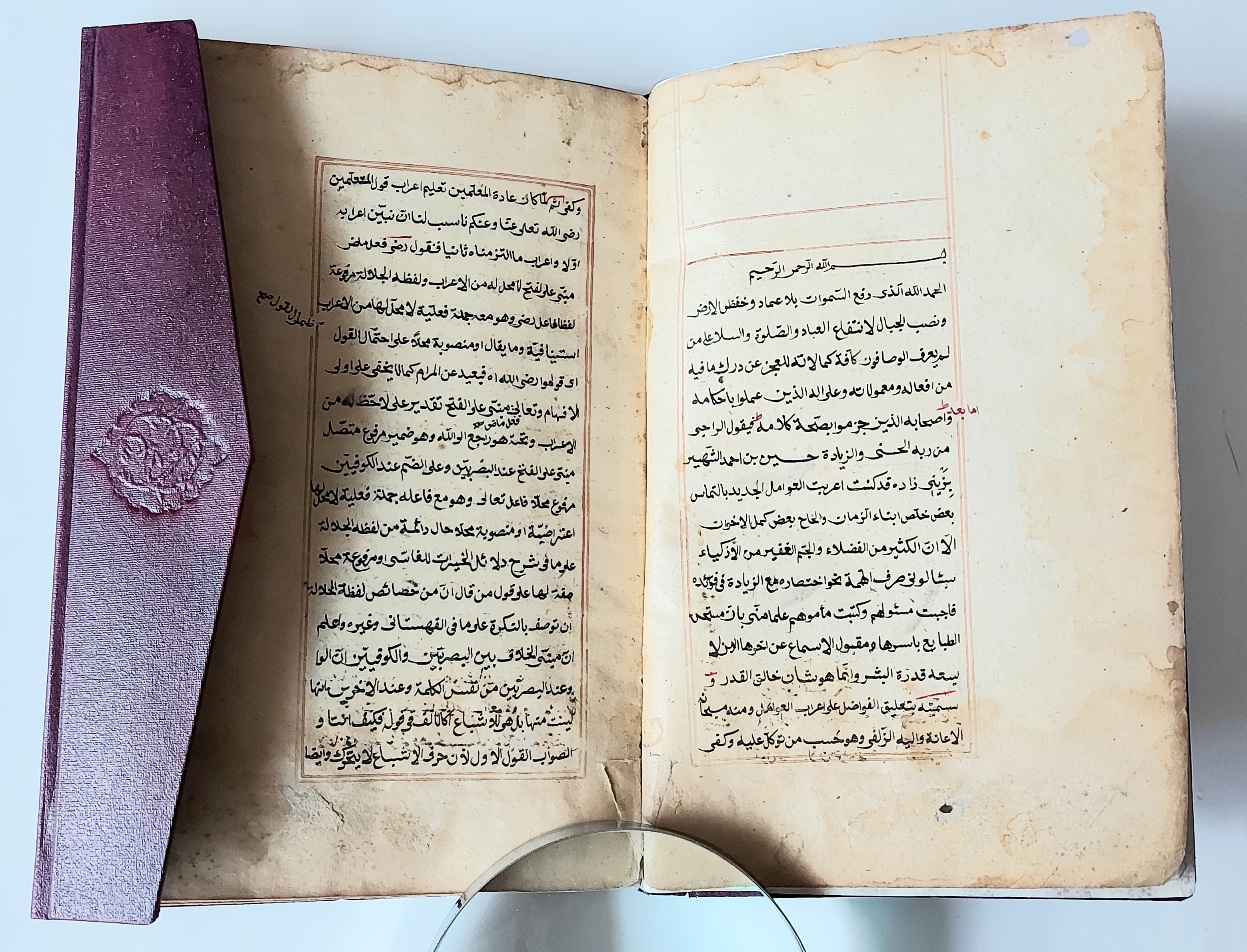 بسم الله الرحمن الرحيم
الحمد لله الذى رفع السموات بلا عماد وخفض الارض
ونصب الجبال لانتفاع العباد والصلوة والسلام على من
لم يعرف الوصافون كافة كمالاته للعجز عن درك ما فيه
من افعاله ومعمولاته وعلى اله الذين عملوا باحكامه
واصحابه الذين جزموا بصحة كلامه فيقول الراجى
اما بعد
من ربه الحسنى والزيادة حسين بن احمد الشهير
بزينى زاده قد كنت اعربت العوامل الجديد بالتماس
بعض خلص ابناء الزمان والحاح بعض كمل الاخوان
الا ان الكثير من الفضلاء والجم الغفير من الاذكياء
سئالونى صرف الهمة نحو اختصاره مع الزيادة فى فوائده
فاجبت مسئولهم وكتبت مأموهم علما منى بان مستحسن
الطبايع باسرها ومقبول الاسماع عن اخرها امر لا
يسعه قدرة البشر وانما هو شان خالق القدر و
سميته بتعليق الفواضل على اعراب العوامل ومنه سبحانه
الاعانة واليه الزلفى وهو حسب من توكل عليه وكفى
وكفى ثم لما كان عادة المعلمين تعليم اعراب قول المتعلمين
رضى الله تعالى عنا وعنكم ناسب لنا ان نبين اعرابه
اولا واعراب ما التزمناه ثانيا فنقول رضى فعل ماض
مبنى على الفتح لا محل له من الاعراب ولفظة الجلالة مرفوعة
لفظا فاعل رضى وهو معه جملة فعلية لا محل لها من الاعراب
استينافية وما يقال او منصوبة محلا على احتمال القول
اى قولوا رضى الله اه فبعيد عن المرام كما لا يخفى على اولى
الافهام وتعالى مبنى على الفتح تقدير على لا محل له من
فعل ماض
الاعراب وتحته هو راجع الى الله وهو ضمير مرفوع متصل
مبنى على الفتح عند البصريين وعلى الضم عند الكوفيين
مرفوع محلا فاعل تعالى وهو مع فاعله جملة فعلية لا محل لها
اعتراضية او منصوبة محلا حال دائمة من لفظة الجلالة
على ما فى شرح دلائل الخيرات للفاسى ومرفوعة محلا
صفة لها على قول من قال ان من خصائص لفظة الجلالة
ان توصف بالنكرة على ما فى القهستانى وغيره واعلم
ان مبنى الخلاف بين البصريين والكوفيين ان الواو
وعند البصريين من نفس الكلمة وعند الاخرين انها
ليست منها بل هى للاشباع كالالف فى قوله و
الصواب القول الاول لان حرف الاشباع لا يتحرك وايضا